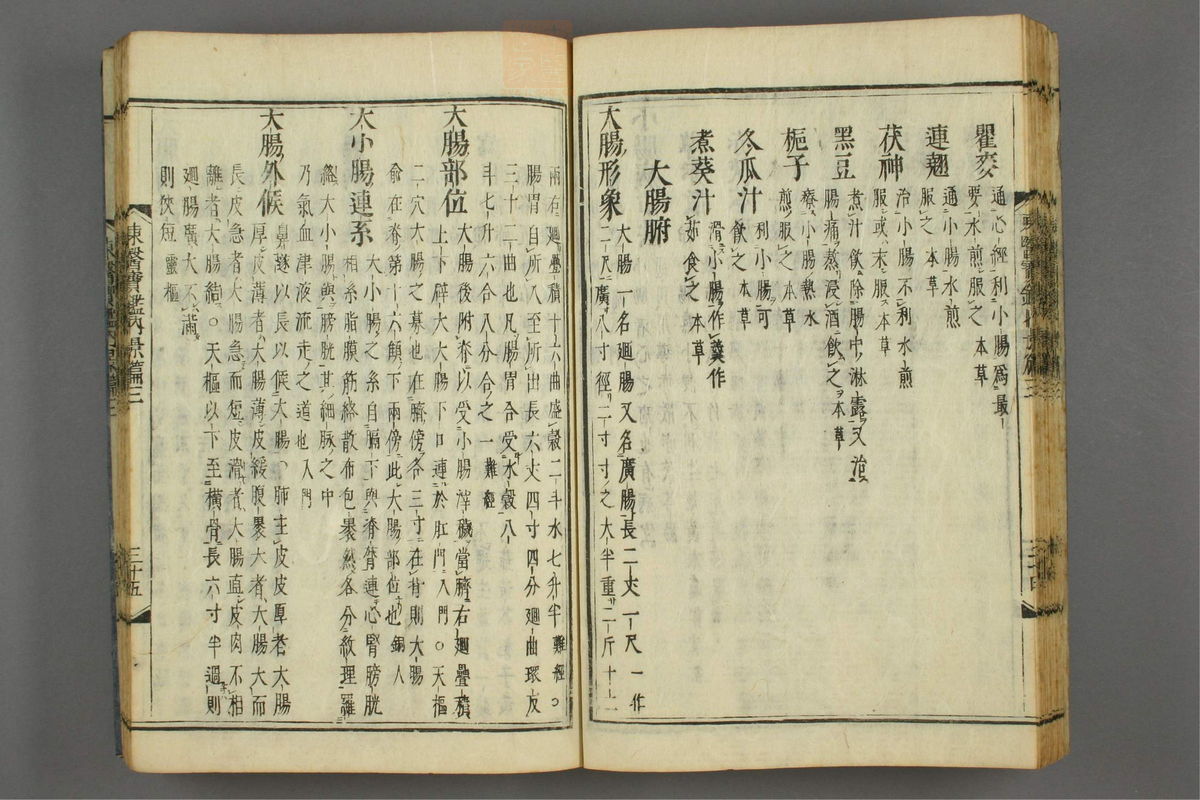 瞿麥
通心經利小腸爲最
要水煎服之本草
連翹
通小腸水煎
服之本草
茯神
治小腸不利水煎
服或末服本草
黑豆
煮汁飲除腸中淋露又治
腸痛熬浸酒飲之本草
梔子
療小腸熱水
煎服之本草
冬瓜汁
利小腸可
飲之本草
煮葵汁
滑小腸作羹作
茹食之本草
大腸腑
大腸形象
大腸一名廻腸又名廣腸長二丈一尺一作
二尺廣八寸徑二寸寸之大半重二斤十二
兩右廻疊積十六曲盛穀二斗水七升半難經○
腸胃自所入至所出長六丈四寸四分廻曲環反
三十二曲也凡腸胃合受水穀八
斗七升六合八分合之一難經
大腸部位
大腸後附脊以受小腸滓穢當臍右廻疊積
上下辟大大腸下口連於肛門入門○天樞
二穴大腸之募也在臍傍各三寸在背則大腸
俞在脊第十六顀下兩傍此大腸部位也銅人
大小腸連系
大小腸之系自膈下與脊膂連心腎膀胱
相系脂膜筋絡散布包裹然各分紋理羅
絡大小腸與膀胱其細脉之中
乃氣血津液流走之道也入門
大腸外候
鼻隧以長以候大腸○肺主皮皮厚者大腸
厚皮薄者大腸薄皮緩腹裹大者大腸大而
長皮急者大腸急而短皮滑者大腸直皮肉不相
離者大腸結○天樞以下至橫骨長六寸半過則
廻腸廣大不滿
則狹短靈樞
東醫寶鑑內景篇三
三十五